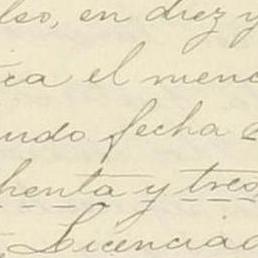 lso, en diez y
ra el menc
undo fecha
henta y tres
Licenciad